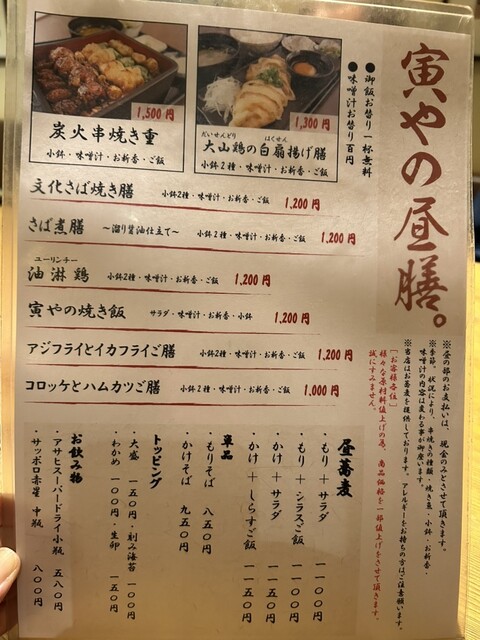 寅やの昼膳。
●御飯お替り一杯無料
●味噌汁お替り百円
1,500円
炭火串焼き重
小鉢・味噌汁・お新香・ご飯
1,300円
だいせんどり はくせん
大山鶏の白扇揚げ膳
小鉢2種・味噌汁・お新香・ご飯
文化さば焼き膳 小鉢2種・味噌汁・お新香・ご飯 1,200円
さば煮膳 〜溜り醤油仕立て〜 小鉢2種・味噌汁・お新香・ご飯 1,200円
ユーリンチー
油淋鶏 小鉢2種・味噌汁・お新香・ご飯 1,200円
寅やの焼き飯 サラダ・味噌汁・お新香・小鉢 1,200円
アジフライとイカフライご膳 小鉢2種・味噌汁・お新香・ご飯 1,200円
コロッケとハムカツご膳 小鉢2種・味噌汁・お新香・ご飯 1,000円
※昼の部のお支払いは、現金のみとさせて頂きます。
※季節、状況により、串焼きの種類・焼き魚・小鉢・お新香・
味噌汁の内容は変わる事が御座います。
※当店はお蕎麦を提供しております。アレルギーをお持ちの方はご注意願います。
［お客様各位］
様々な原材料値上げの為、商品価格を一部値上げをさせて頂きます。
誠にすみません。
昼蕎麦
もり＋サラダ 一一〇〇円
もり＋シラスご飯 一一〇〇円
かけ＋サラダ 一一五〇円
かけ＋しらすご飯 一一五〇円
単品
・もりそば 八五〇円
・かけそば 九五〇円
トッピング
・大盛 一五〇円・刻み海苔 一〇〇円
・わかめ 一〇〇円・生卵 一五〇円
お飲み物
・アサヒスーパードライ小瓶 五八〇円
・サッポロ赤星 中瓶 八〇〇円